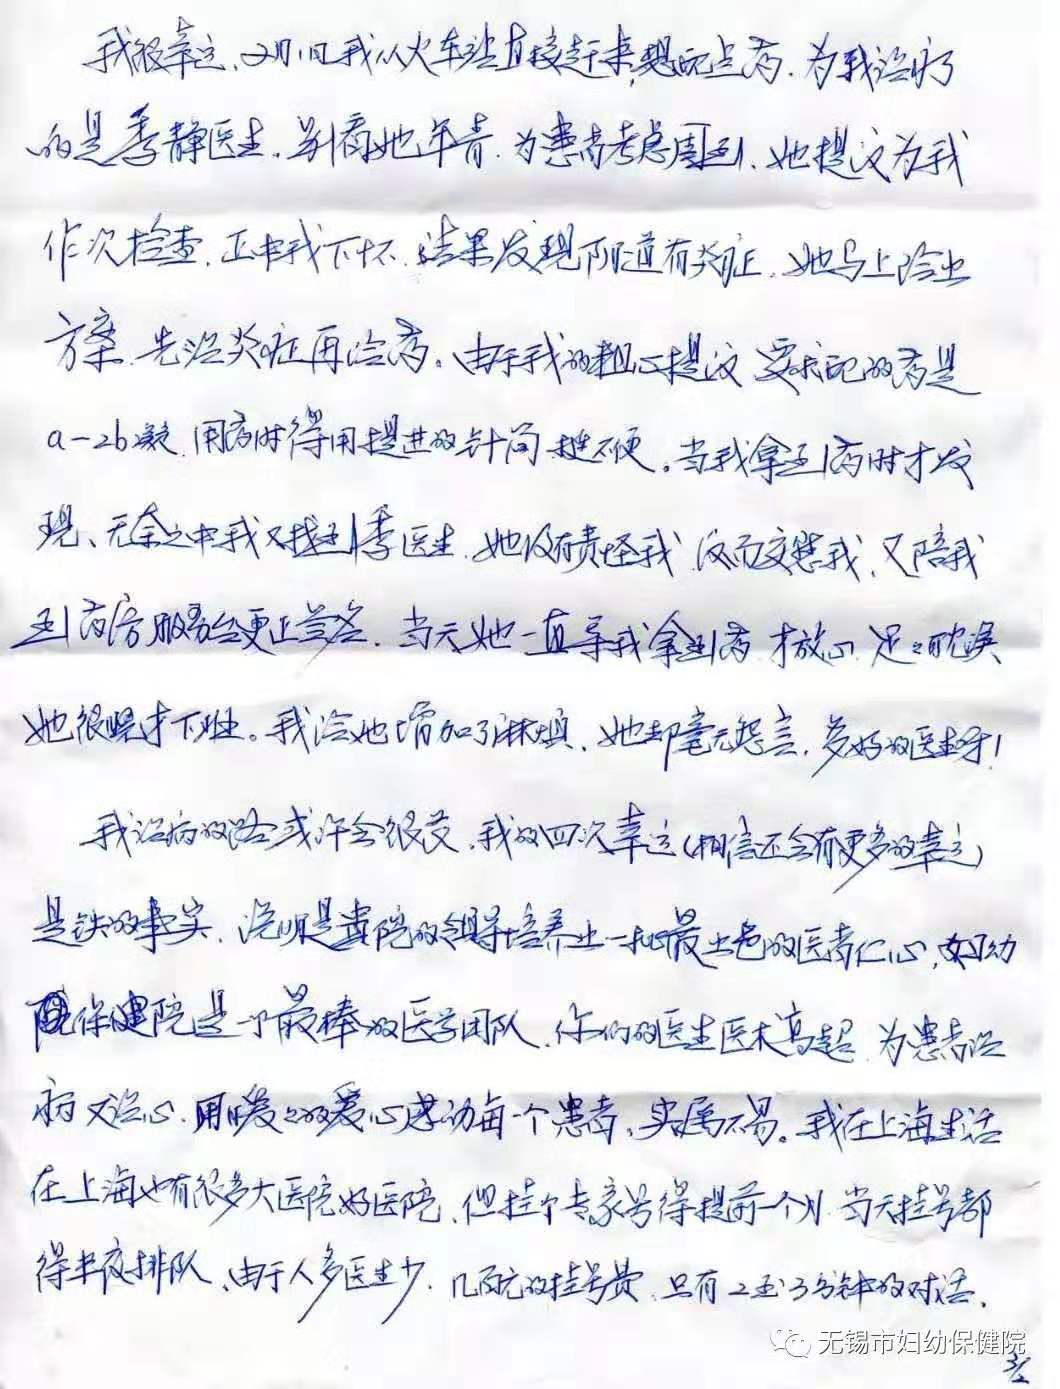 我很幸运、2月1日我从火车站直接赶来,想配点药.为我治疗
的是季静医生.别看她年青.为患者考虑周到、她提议为我
作次检查.正中我下怀.结果发现阴道有炎症.她马上给出
方案.先治炎症再给药。由于我的粗心提议要求配的药是
a-2b凝.用药时得用推进的针筒挺不便。当我拿到药时才发
现、无奈之中我又找到季医生.她没有责怪我反而安慰我、又陪我
到药房服务台更正签名.当天她一直等我拿到药才放心.足足耽误
她很晚才下班。我给她增加了麻烦、她却毫无怨言.多好的医生呀!
我治病的路或许会很长.我的四次幸运(相信还会有更多的幸运)
是铁的事实、说明是贵院的领导培养出一批最出色的医者仁心,妇幼
保健院是一个最棒的医学团队.你们的医生医术高超.为患者治
病又治心.用暖暖的爱心感动每一个患者、实属不易。我在上海生活
在上海也有很多大医院好医院、但挂个专家号得提前一个月.当天挂号都
得半夜排队、由于人多医生少.几百元的挂号费.只有2至3分钟的对话、
无锡市妇幼保健院